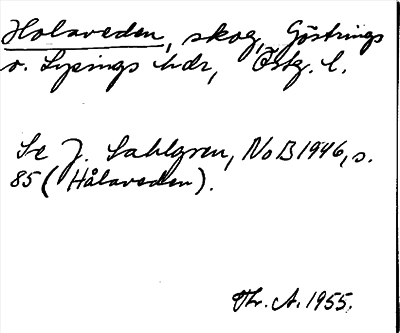 Holaveden, skog, Göstrings
o. Lysings hdr, Östg. l.
Se J. Sahlgren, NoB 1946, s.
85 (Hålaveden).
Thr. A. 1955.